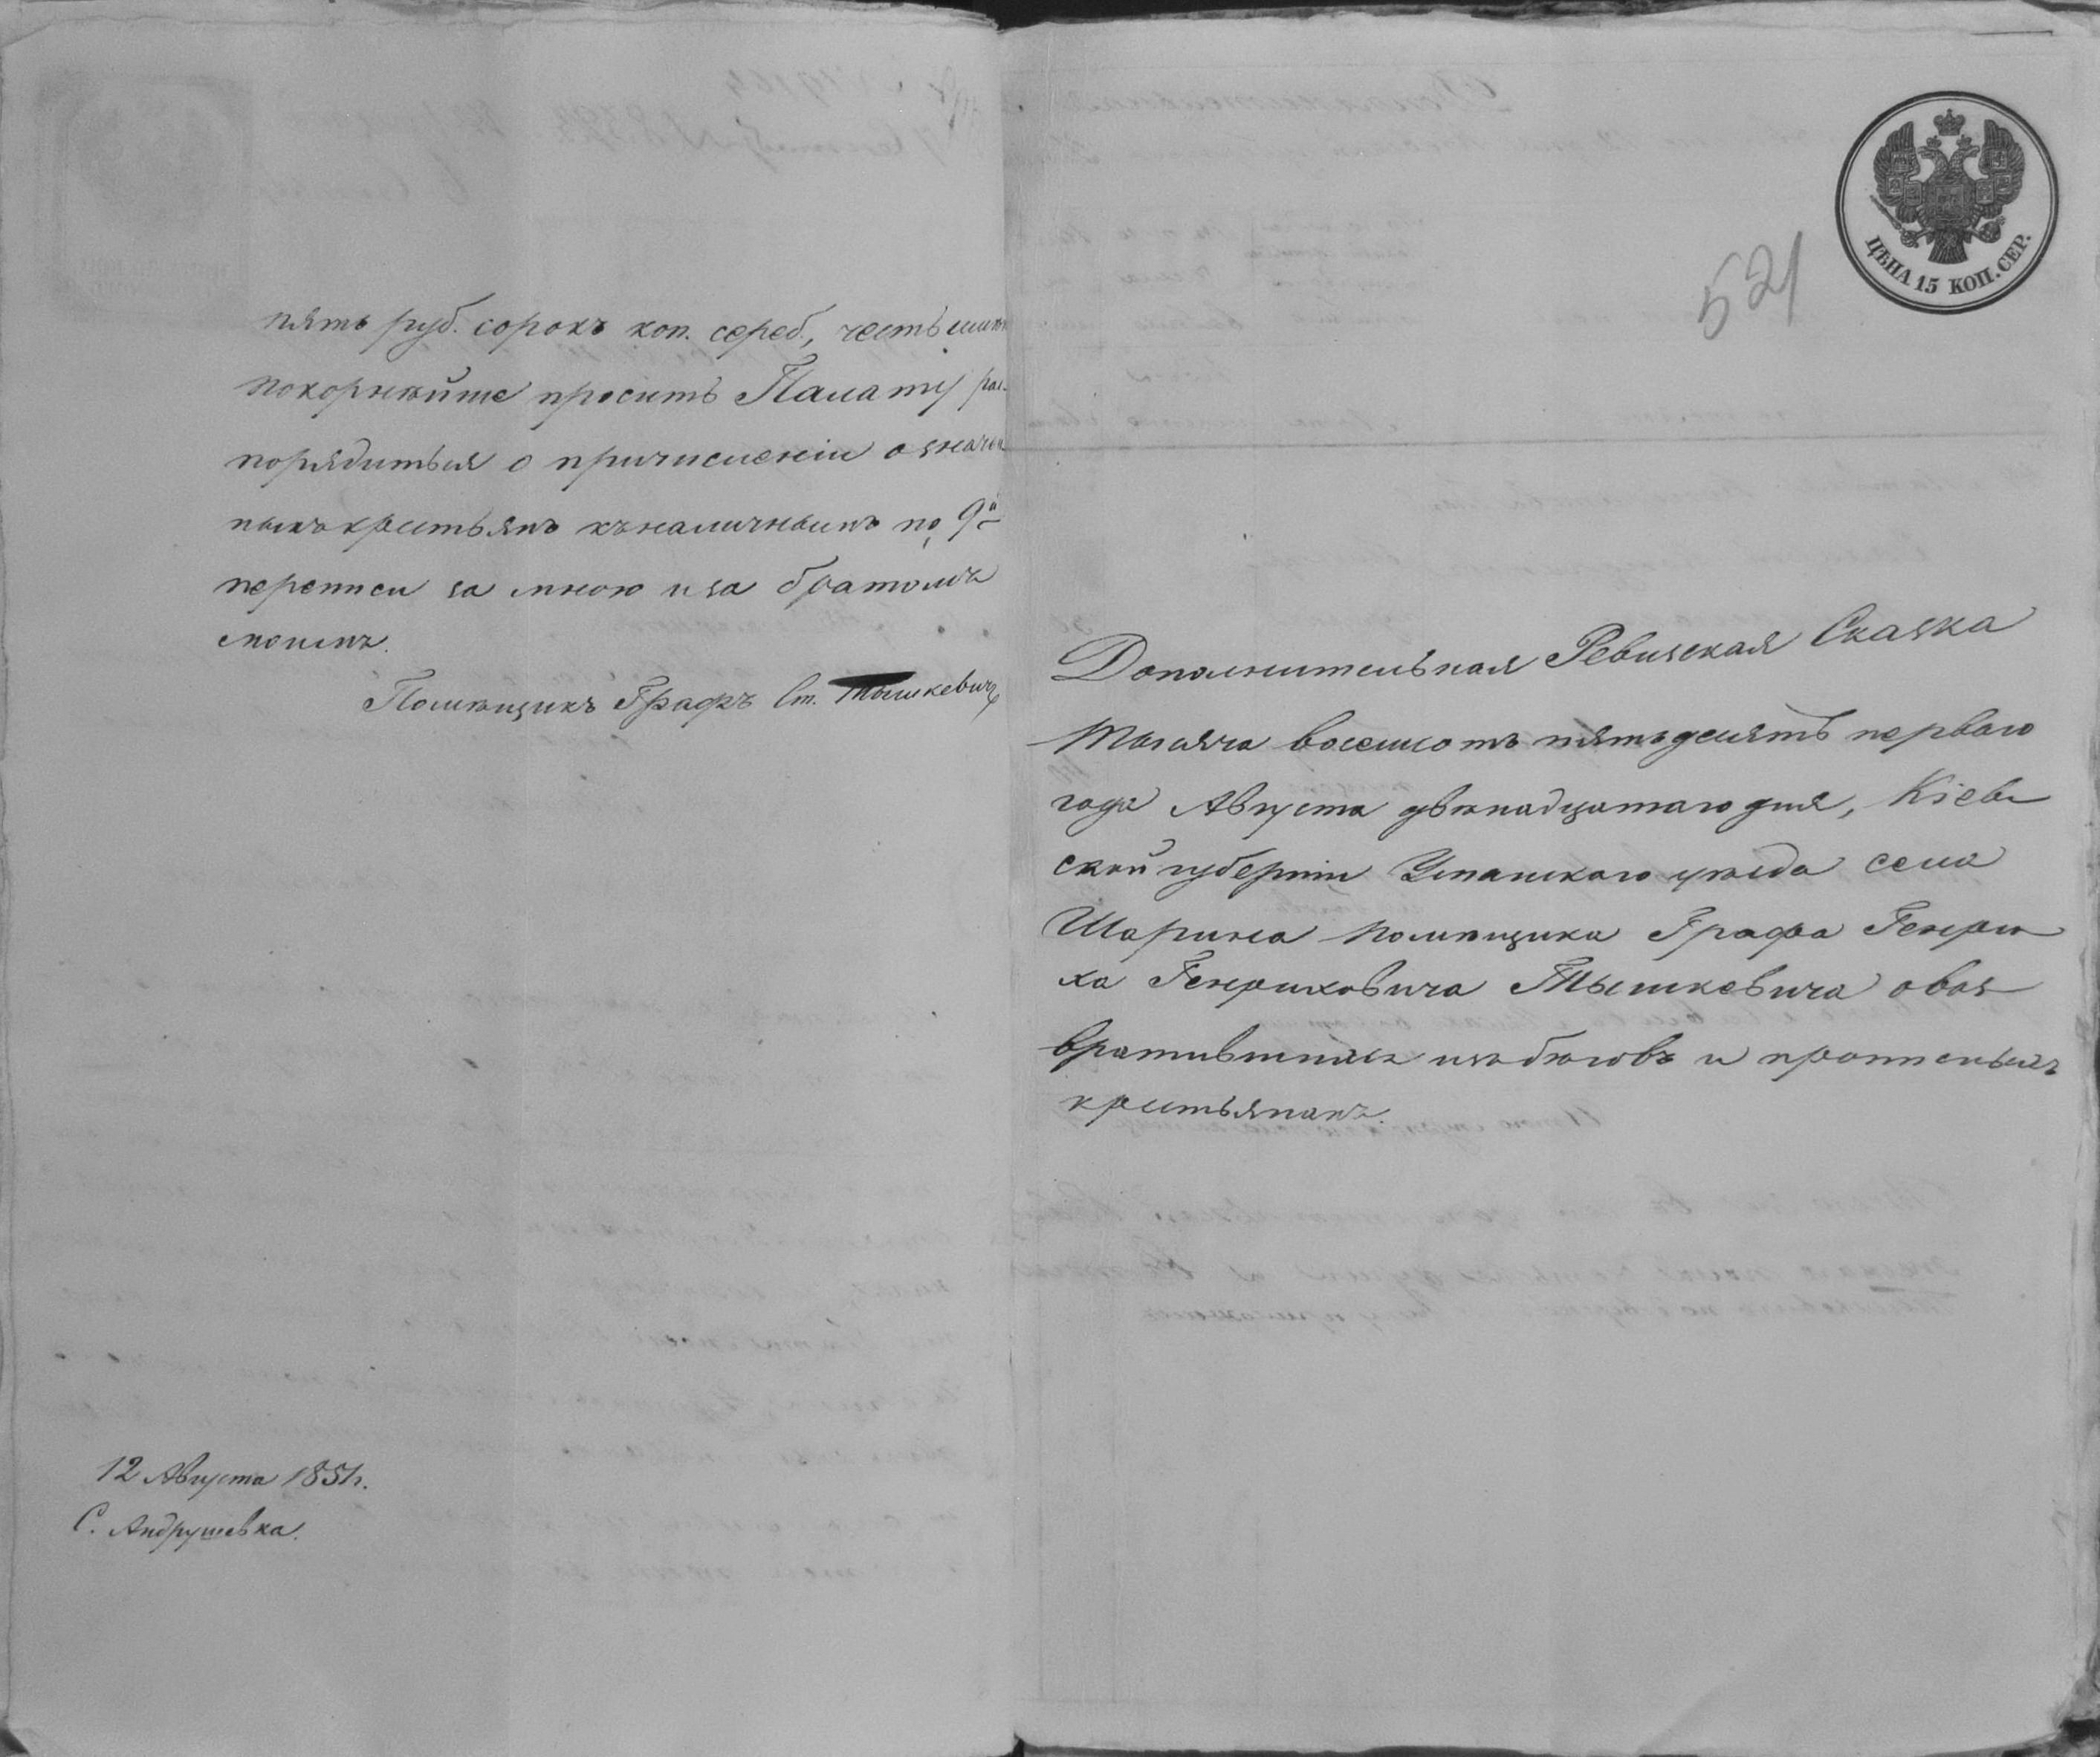 пять руб. сорокъ коп. сереб., честь имѣю
покорнѣйше просить Палату рас-
порядиться о причисленіи означен
ныхъ крестьянъ къ наличнымъ по 9й
переписи за мною и за братомъ
моимъ.
Помѣщикъ Графъ Ст. Тышкевичъ
12 Августа 1851 г.
С. Андрушевка.
ЦѢНА 15 КОП. СЕР.
521
Дополнительная Ревизская Сказка
Тысяча восемсотъ пятьдесятъ перваго
года Августа двѣнадцатаго дня, Кіев
ской губерніи Уманскаго уѣзда села
Шарина помѣщика Графа Генри
ха Генриховича Тышкевича о воз
вратившихся изъ бѣговъ и прописныхъ
крестьянахъ.